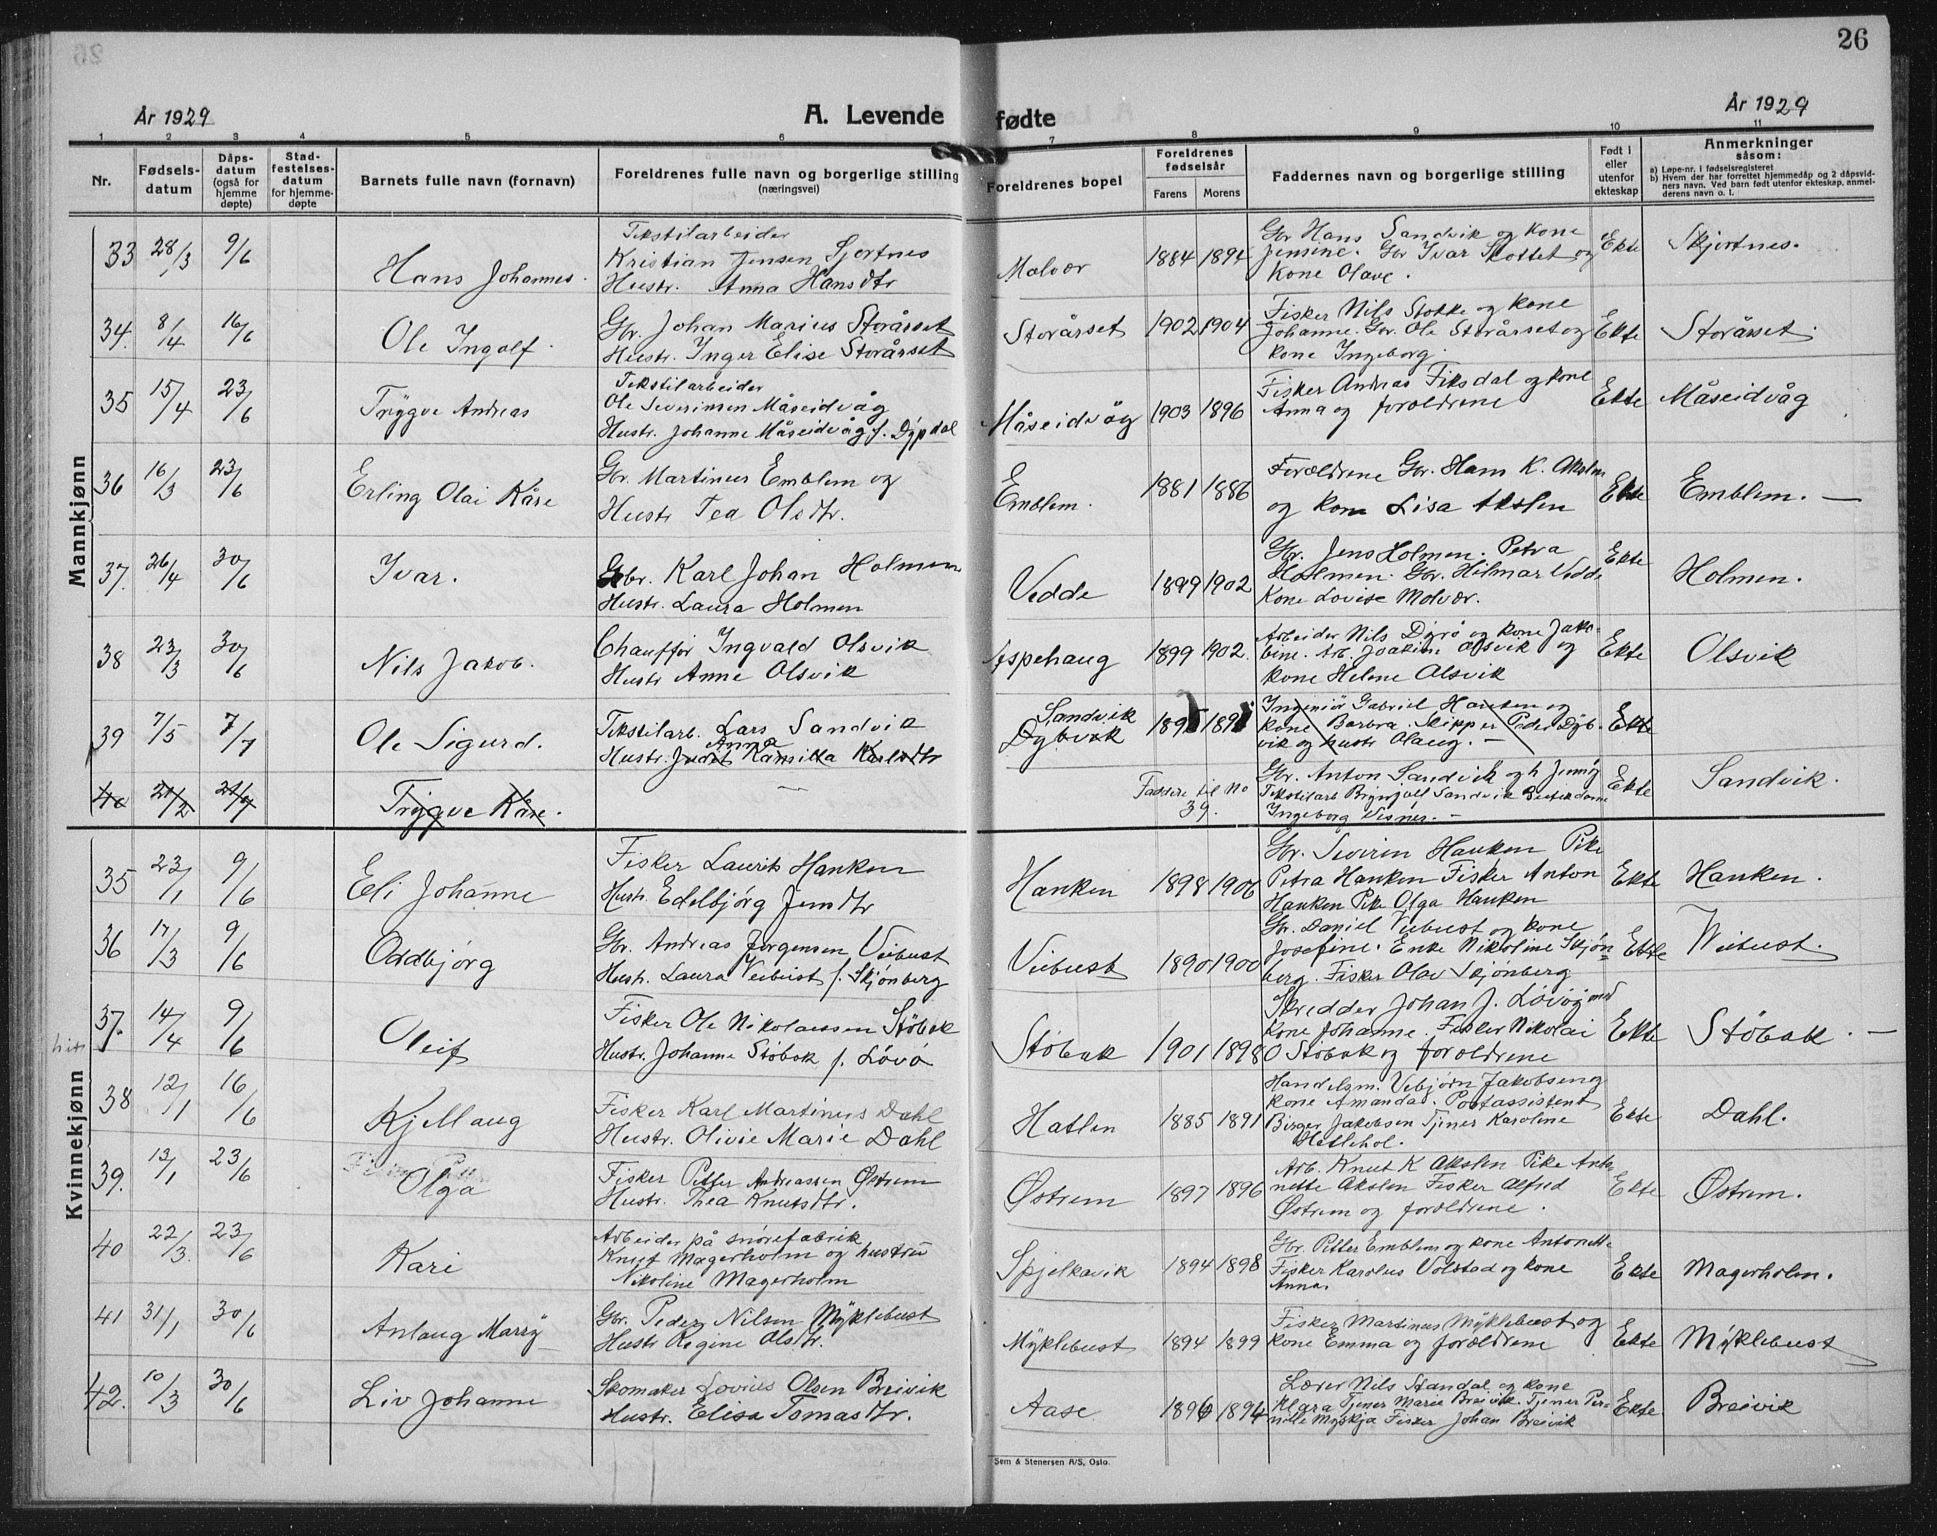 26
År 1929
A. Levende fødte
År 1929
1 2 3 4 5 6 7 8 9 10 11
Nr.
Fødsels-datum
Dåps-datum (også for hjemme døpte)
Stad-festelses-datum for hjemme-døpte
Barnets fulle navn (fornavn)
Foreldrenes fulle navn og borgerlige stilling
(næringsvei)
Foreldrenes bopel
Foreldrenes fødselsår
Farens Morens
Faddernes navn og borgerlige stilling
Født i eller utenfor ekteskap
Anmerkninger
såsom:
a) Løpe-nr. i fødselsregisteret
b) Hvem der har forrettet hjemmedåp og 2 dåpsvid-
ners navn. Ved barn født utenfor ekteskap, anmel-
derens navn o. l.
Mannkjønn
33 28/3 9/6 Hans Johannes.
Tekstilarbeider
Kristian Jensen Sjortnes
Hustr. Anna Hansdtr
Molvær 1884 1894
Gbr Hans Sandvik og kone
Jensine. Gbr Ivar Slottet og
kone Olave.
Ekte Skjortnes.
34. 8/4 16/6 Ole Ingolf.
Gbr. Johan Marius Storårset
Hustr. Inger Elise Storårset
Storårset 1902 1904
Fisker Nils Stokke og kone
Johanne. Gbr. Ole Storårset og
kone Ingeborg.
Ekte Storårset.
35 15/4 23/6 Trygve Andreas
Tekstilarbeider
Ole Severinsen Måseidvåg
Hustr. Johanne Måseidvåg f. Dypdal
Måseidvåg 1903 1896
Fisker Andreas Fiksdal og kone
Anna og foreldrene
Ekte Måseidvåg
36 16/3 23/6 Erling Olai Kåre
Gbr. Martinus Emblem og
Hustr Tea Olsdtr.
Emblem. 1881 1886
Forældrene Gbr. Hans K. Akslen
og kone Lisa Akslen
Ekte Emblem. —
37. 26/4 30/6 Ivar.
Gbr. Karl Johan Holmen
Hustr. Laura Holmen
Vedde 1899 1902
Gbr. Jens Holmen. Petra
Holmen. Gbr. Hilmar Vedde
Kone Lovise Molvær.
Ekte Holmen.
38 23/3 30/6 Nils Jakob.
Chauffør Ingvald Olsvik
Hustr Anne Olsvik
Aspehaug 1899 1902.
Arbeider Nils Dyrø og kone Jako-
bine. Arb. Joakim Olsvik og
kone Helene Olsvik
Ekte Olsvik
39 7/5 7/7 Ole Sigurd.
Tekstilarb. Lars Sandvik
Anna
Hustr. Judit Kamilla Karlsdtr
Sandvik
Dybvik
Ingeniør Gabriel Hansen og
kone Barbra. Skipper Peder Dyb-
vik og hustr Olaug. —
Ekte
40 21/2 21/7 Trygve Kåre. —
Faddere til No
39.
Gbr. Anton Sandvik og h. Jenny
Tekstilarb Brynjulf Sandvik Butikdame
Ingeborg Visnes. —
Ekte Sandvik.
Kvinnekjønn
35 23/1 9/6 Eli Johanne
Fisker Laurits Hanken
Hustr. Edelbjørg Jensdtr
Hanken 1898 1906
Gbr. Severin Hanken Pike
Petra Hanken Fisker Anton
Hanken Pike Olga Hanken
Ekte Hanken.
36 17/3 9/6 Oddbjørg
Gbr. Andreas Jørgensen Veibust
Hustr. Laura Veibust f. Skjønberg
Veibust 1890 1900
Gbr. Daniel Veibust og kone
Josefine. Enke Nikoline Skjøn-
berg. Fisker Olav Skjønberg
Ekte Veibust.
37. 14/4 9/6 Oleif
Fisker Ole Nikolaessen Støbak
Hustr. Johanne Støbak f. Løvø
Støbak 1901 1898
Skredder Johan J. Løvø med
kone Johanne. Fisker Nikolai
O Støbak og foreldrene
Ekte Støbak. —
38 12/1 16/6 Kjellaug
Fisker Karl Martinus Dahl
Hustr. Olivie Marie Dahl
Hatlen 1885 1891
Handelsm. Vebjørn Jakobsen og
kone Amanda. Postassistent
Birger Jakobsen Tjener Karoline
Hatlehol.
Ekte Dahl.
39. 13/1 23/6 Olga
Fisker Petter Andreassen Østrem
Hustr. Thea Knutsdtr.
Østrem 1897 1896
Arb. Knut K Akslen Pike Anto-
nette Akslen Fisker Alfred
Østrem og foreldrene.
Ekte Østrem.
40 22/3. 23/6 Kari
Arbeider på snørefabrik
Knut Magerholm og hustru
Nikoline Magerholm
Spjelkavik 1894 1898
Gbr. Petter Emblem og kone Antonette
Fisker Karolus Volstad og kone
Anna.
Ekte Magerholm.
41 31/1 30/6 Anlaug Marry
Gbr. Peder Nilsen Myklebust
Hustr Regine Olsdtr.
Myklebust 1894 1899
Fisker Martinus Myklebust og
kone Emma og foreldrene
Ekte Myklebust
42. 10/3 30/6 Liv Johanne
Skomaker Lovius Olsen Breivik
Hustr. Elise Tomasdtr.
Aase 1896 1894
Lærer Nils Standal og kone
Klara Tjener Marie Breivik. Tjener Per-
nille Myskja Fisker Johan Breivik
Ekte Breivik
Sem & Stenersen A/S, Oslo.